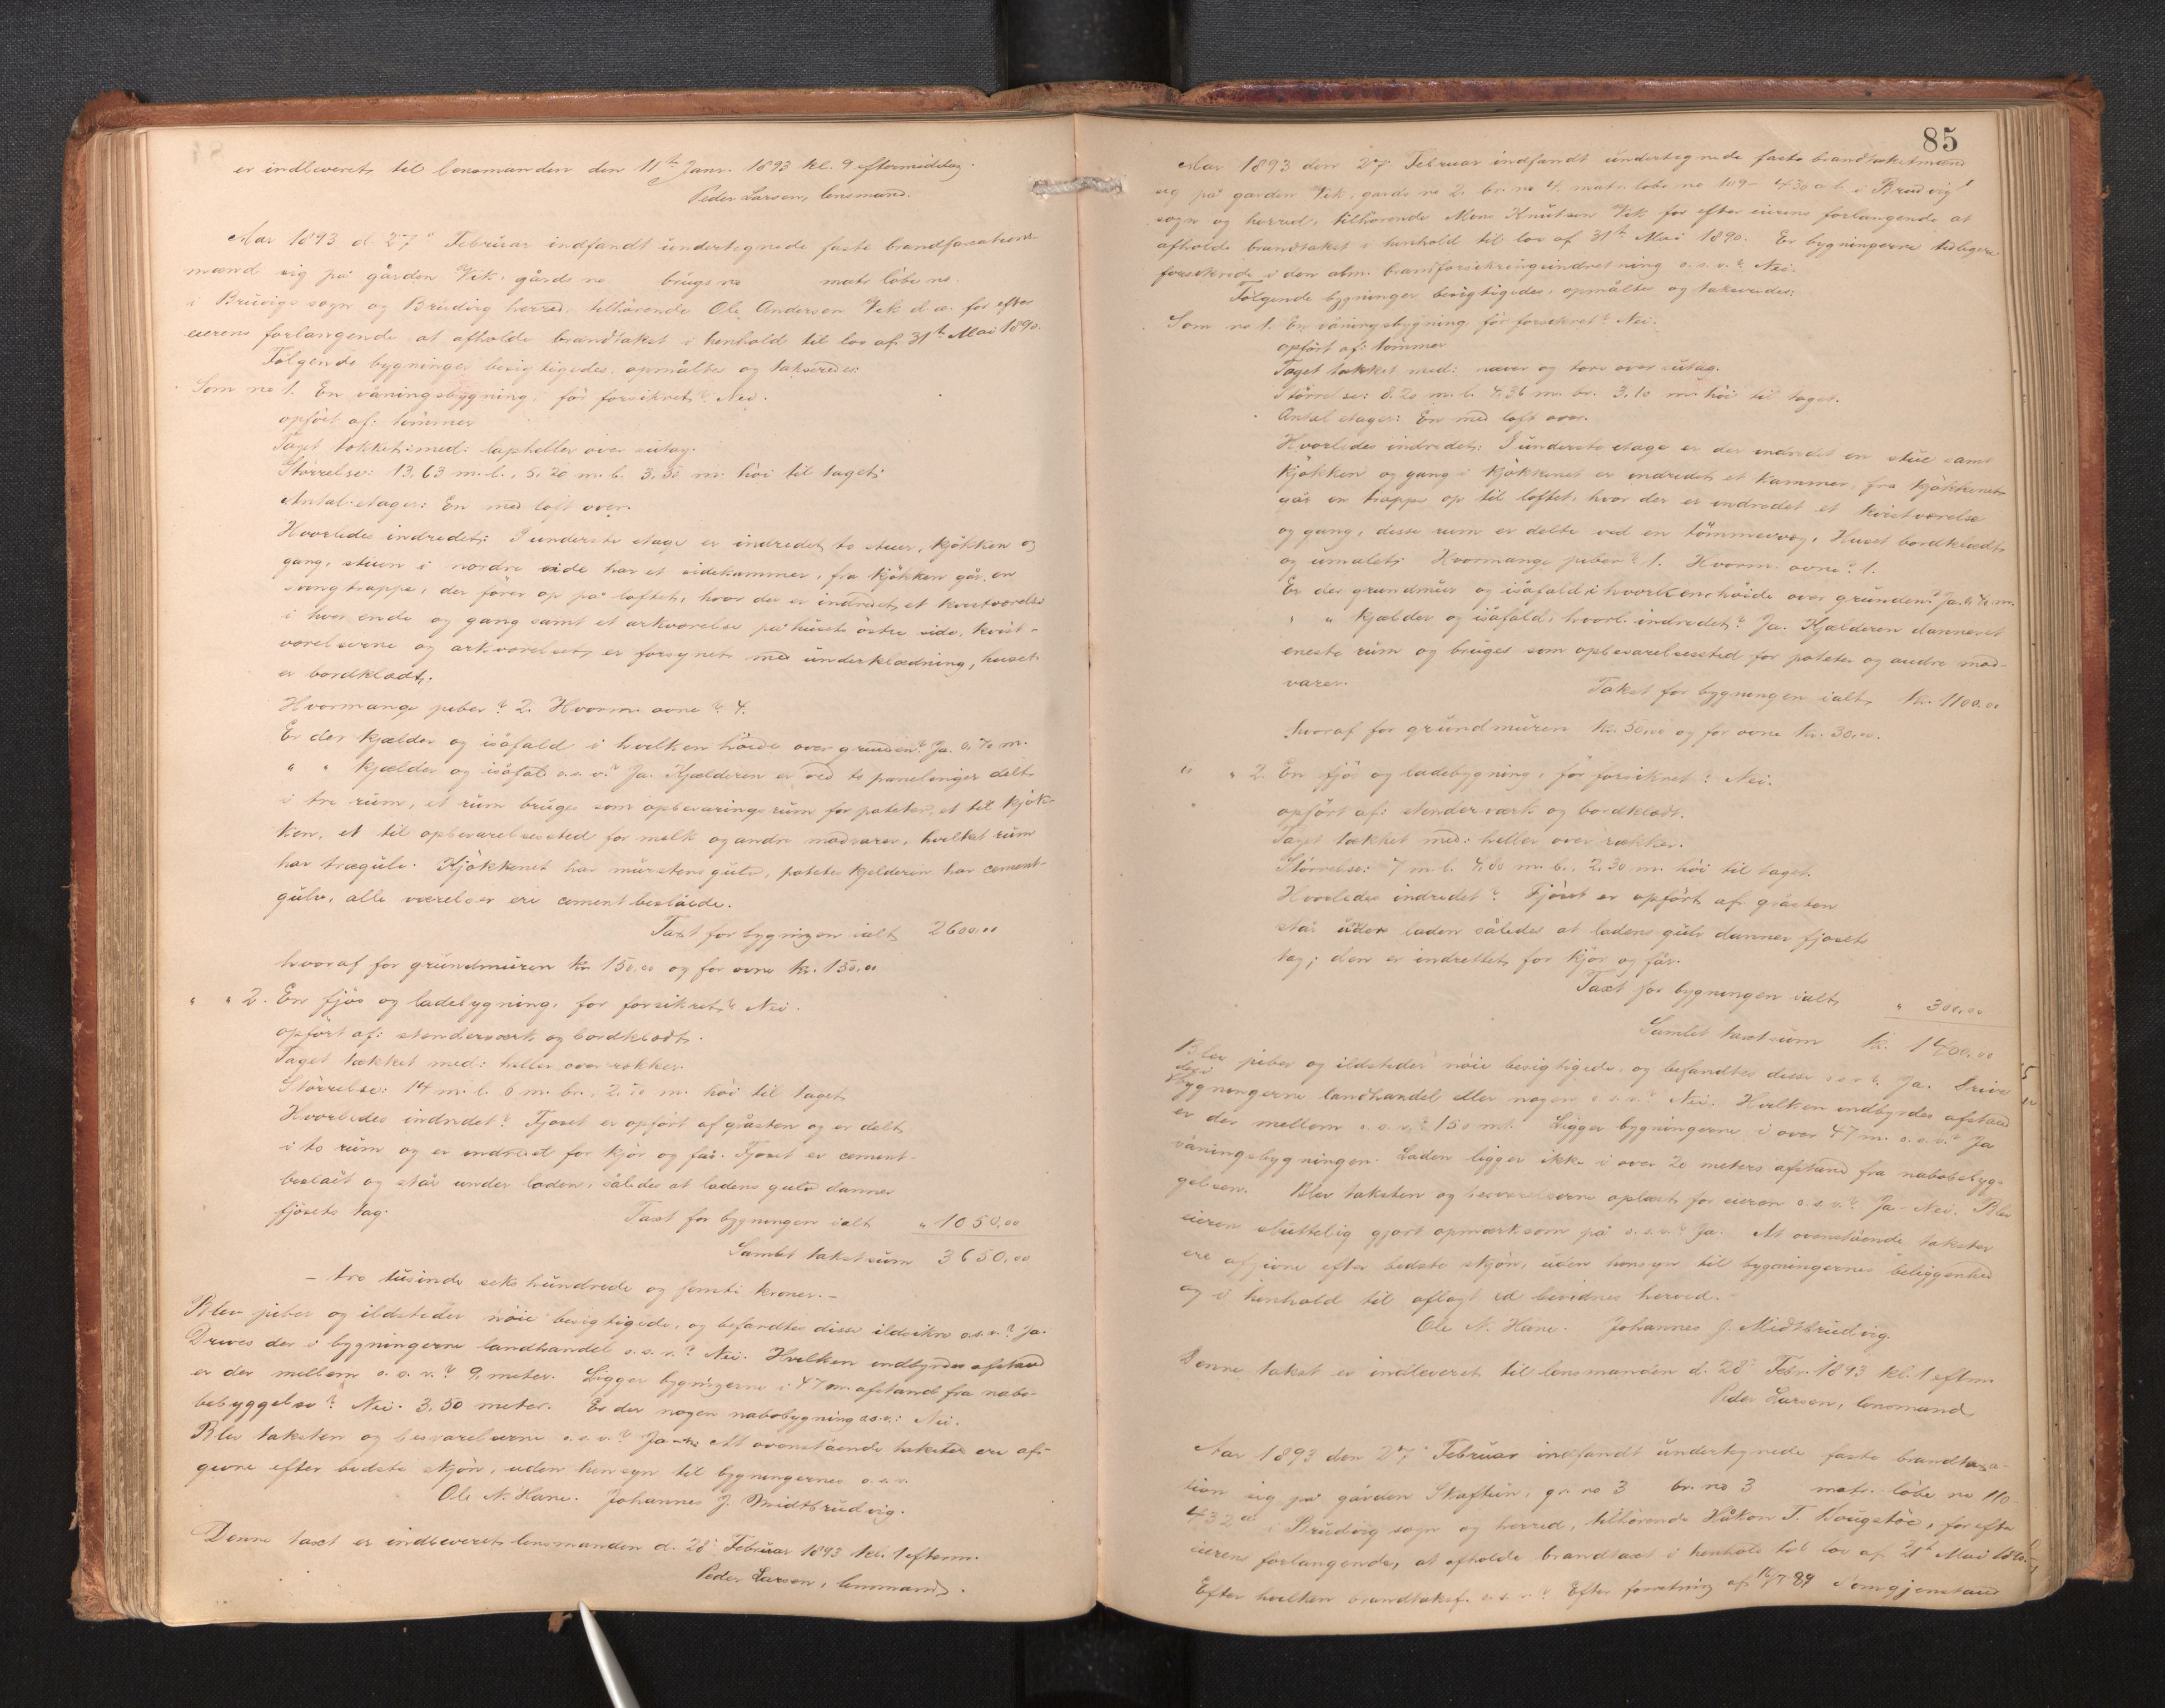 er indleveret til lensmanden den 11te Janr. 1893 kl. 9 eftermiddag.
Peder Larsen, lensmand.
Aar 1893 d. 27" Februar indfandt undertegnede faste brandtaxations-
mænd sig på gården Vik, gårds no brugs no matr. löbe no
i Bruvigs sogn og Brudvig herred, tilhörende Ole Andersen Vik d.æ. for efter
eierens forlangende at afholde brandtakst i henhold til lov af 31te Mai 1890.
Fölgende bygninger besigtigedes, opmåltes og takseredes:
Som no 1. En våningsbygning, för forsikret? Nei.
opfört af: tömmer
Taget tækket med: lapheller over sutag.
Störrelse: 13,63 m. l., 5,20 m. b. 3,30 m. höi til taget.
Antal etager: En med loft over.
Hvorledes indredet: I underste etage er indredet to stuer, kjökken og
gang, stuen i nordre side har et sidekammer, fra kjökken går en
svingtrappe, der förer op på loftet, hvor der er indredet et kvistværelse
i hver ende og gang samt et arkværelse på husets östre side, kvist-
værelserne og arkværelset er forsynet med underklædning, huset
er bordklædt.
Hvormange peber? 2. Hvorm. ovne? 4.
Er der kjælder og isåfald i hvilken höide over grunden? Ja. 0,70 m.
" " kjælder og isåfald o.s.v.? Ja. Kjælderen er ved to panelinger delt
i tre rum, et rum bruges som opbevaringsrum for poteter, et til kjök-
ken, et til opbevarelsessted for melk og andre madvarer, hvilket rum
har trægulv. Kjökkenet har murstensgulv, potetekjelderen har cement-
gulv, alle værelser ere cementbeslåede.
Taxt for bygningen ialt 2600,00
hvoraf for grundmuren kr. 150,00 og for ovne kr. 150,00
" " 2. En fjös og ladebygning, för forsikret? Nei.
opfört af: stenderværk og bordklædt.
Taget tækket med: heller over rækker.
Störrelse: 14 m. l. 6 m. br., 2,70 m. höi til taget.
Hvorledes indredet? Fjöset er opfört af gråsten og er delt
i to rum og er indredet for kjör og får. Fjöset er cement-
beslåët og står under laden, således at ladens gulv danner
fjösets tag. Taxt for bygningen ialt " 1050,00
Samlet takstsum 3650,00
– tre tusinde seks hundrede og femti kroner. –
Blev peber og ildsteder nöie besigtigede, og befandtes disse ildsikre o.s.v.? Ja.
Drives der i bygningerne landhandel o.s.v.? Nei. Hvilken indbyrdes afstand
er der mellem o.s.v.? 9 meter. Ligger bygningerne i 47 m. afstand fra nabo-
bebyggelse? Nei. 3,50 meter. Er der nogen nabobygning o.s.v.: Nei.
Blev taksten og besvarelserne o.s.v.? Ja – At ovenstående takster ere afi-
givne efter bedste skjön, uden hensyn til bygningernes o.s.v.
Ole N. Hane. Johannes J. Midtbrudvig.
Denne taxt er indleveret lensmanden d. 28' Februar 1893 kl. 1 efterm.
Peder Larsen, lensmand.
85
Aar 1893 den 27' Februar indfandt undertegnede faste brandtakstmænd
sig på gården Vik, gards no 2, br. no 4, matr. löbe no 109 – 430 a b. i Brudvig
sogn og herred, tilhörende Mons Knutsen Vik for efter eierens forlangende at
afholde brandtakst i henhold til lov af 31te Mai 1890. Er bygningerne tidligere
forsikrede i den alm. brandforsikringsindretning o.s.v.? Nei.
Fölgende bygninger besigtigedes, opmåltes og takseredes:
Som no 1. En våningsbygning, för forsikret? Nei.
opfört af: tömmer
Taget tækket med: næver og torv over sutag.
Störrelse: 8,20 m. l. 4,36 m. br. 3,10 m. höi til taget.
Antal etager: En med loft over.
Hvorledes indredet: I underste etage er der indredet en stue samt
kjökken og gang i kjökkenet er indredet et kammer, fra kjökkenet
går en trappe op til loftet, hvor der er indredet et kvistværelse
og gang, disse rum er delte ved en tömmerveg, Huset bordklædt
og umalet. Hvormange peber? 1. Hvorm. ovne? 1.
Er der grundmur og isåfald i hvilken höide over grunden? Ja.
" " kjælder og isåfald, hvorl. indredet? Ja. Kjælderen danner et
eneste rum og bruges som opbevarelsessted for poteter og andre mad-
varer.
Takst for bygningen ialt kr. 1100.00
hvoraf for grundmuren kr. 50,00 og for ovne kr. 30,00.
" " 2. En fjös og ladebygning, för forsikret? Nei.
opfört af: stenderværk og bordklædt.
Taget tækket med: heller over rækker.
Störrelse: 7 m. l. 4,80 m. b., 2,30 m. höi til taget.
Hvorledes indredet? Fjöset er opfört af gråsten
står under laden således at ladens gulv danner fjösets
tag; den er indrettet for kjör og får.
Taxt for bygningen ialt " 300,00
Samlet taxtsum kr. 1400.00
Blev peber og ildsteder nöie besigtigede, og befandtes disse o.s.v.? Ja. Drives
der i bygningerne landhandel eller nogen o.s.v.? Nei. Hvilken indbyrdes afstand
er der mellem o.s.v.? 150 mt. Ligger bygningerne i over 47 m. o.s.v.? Ja
våningsbygningen. Laden ligger ikke i over 20 meters afstand fra nabobebyg-
gelsen. Blev taksten og besvarelserne oplæst for eieren o.s.v.? Ja – Nei. Blev
eieren sluttelig gjort opmærksom på o.s.v.? Ja. At ovenstående takster
ere afgivne efter bedste skjön, uden hensyn til bygningernes beliggenhed
og i henhold til aflagt ed bevidnes herved.
Ole N. Hane. Johannes J. Midtbrudvig.
Denne takst er indleveret til lensmanden d. 28' Febr. 1893 kl. 1 eftm.
Peder Larsen, lensmand
Aar 1893 den 27' Februar indfandt undertegnede faste brandtaxa-
tion sig på gården Skaftun, gr. no 3 br. no 3 matr. löbe no 110
432 a i Brudvig sogn og herred, tilhörende Håkon T. Bougstöe, for efter
eierens forlangende, at afholde brandtaxt i henhold til lov af 31te Mai 1890.
Efter hvilken brandtakstf. o.s.v.? Efter forretning af 16/7 89 Som gjenstand